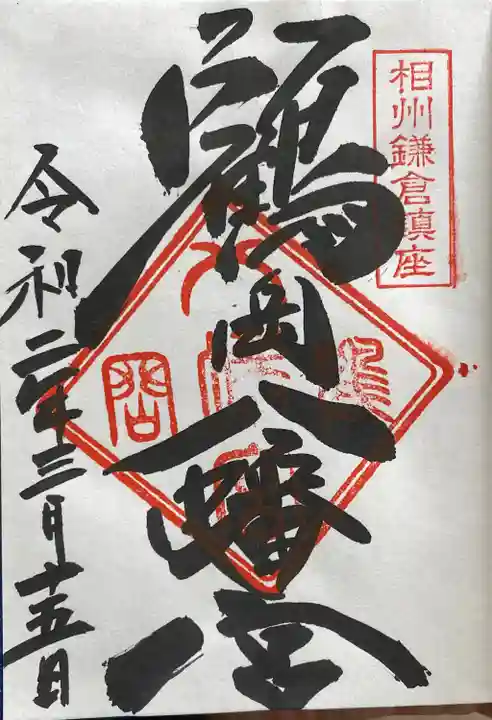 相州鎌倉鎮座
鶴岡八幡宮
令和二年三月十五日